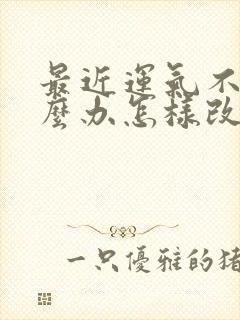 最近運氣不
麼办怎樣改
一只優雅的猪